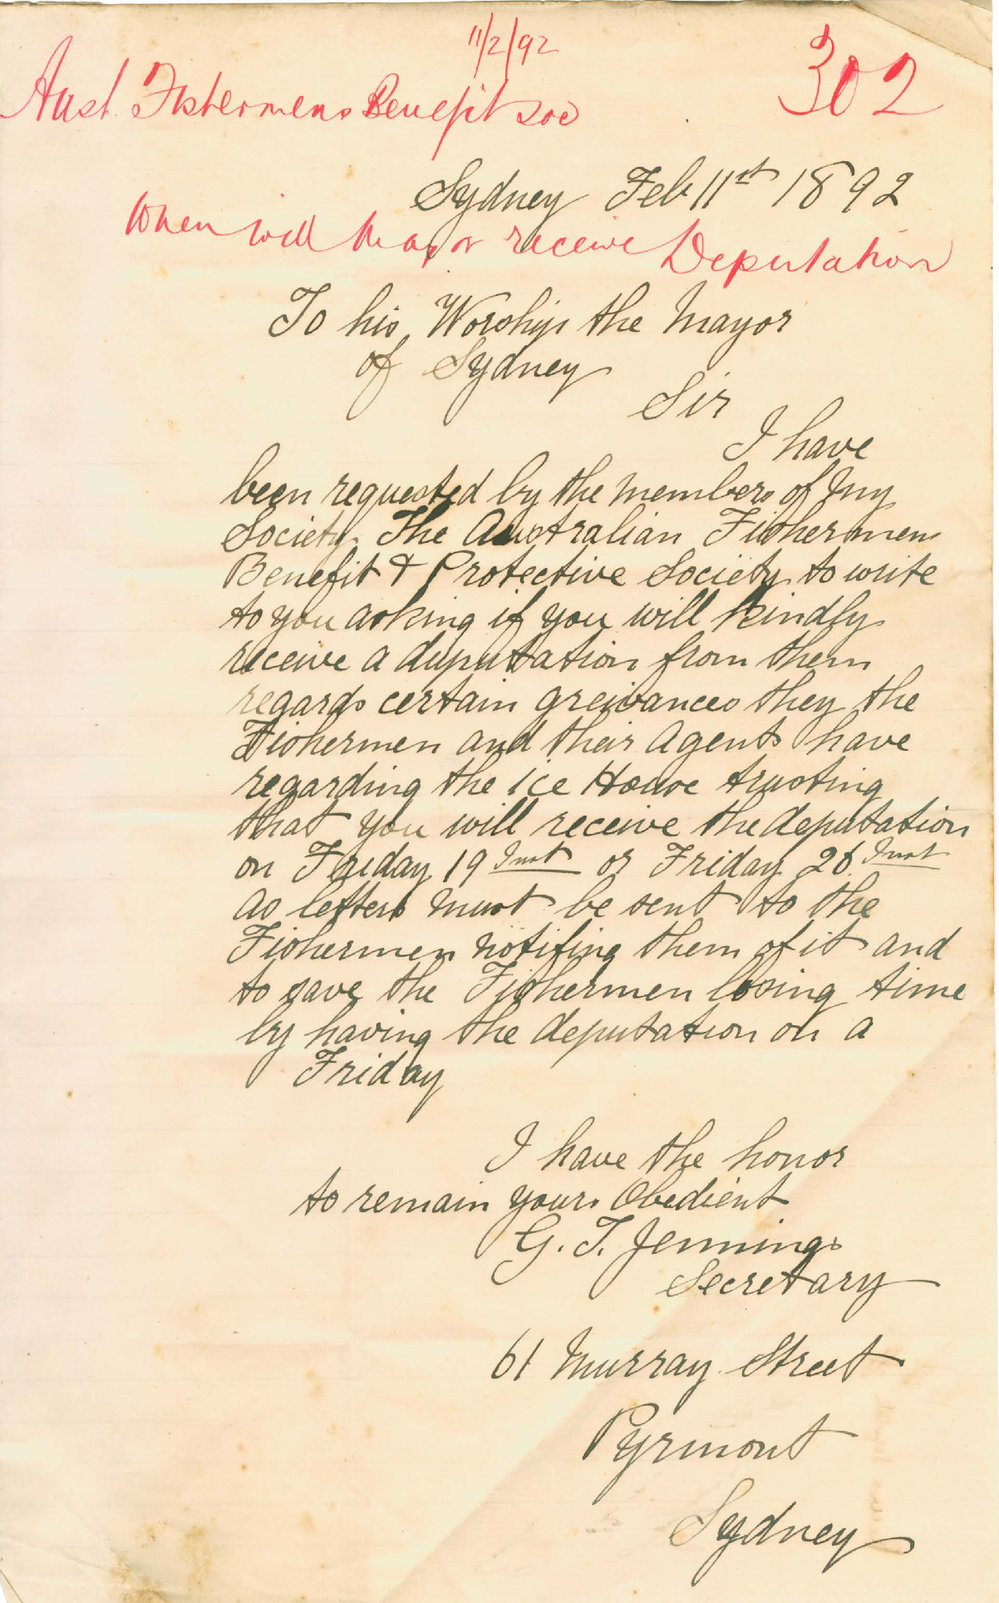 11/2/92
302
Aust. Fishermens Benefit Soc
Sydney Feb 11st 1892
When will Mayor receive Deputation
To his Worship the Mayor
of Sydney
Sir
I have
been requested by the members of my
Society. The Australian Fishermens
Benefit & Protective Society to write
to you asking if you will kindly
receive a deputation from them
regards certain greivances they the
Fishermen and their Agents have
regarding the ice House trusting
that you will receive the deputation
on Friday 19 Inst or Friday 26 Inst
as letters must be sent to the
Fishermen notifing them of it and
to save the Fishermen losing time
by having the deputation on a
Friday
I have the honor
to remain yours Obedient
G. T. Jennings
Secretary
61 Murray Street
Pyrmont
Sydney